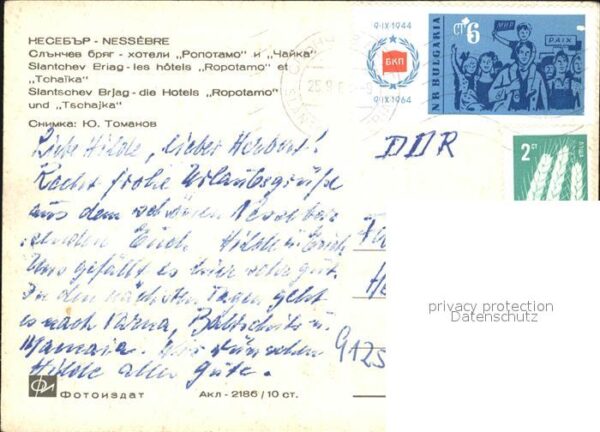 НЕСЕБЪР - NESSÈBRE
Слънчев бряг - хотели „Ропотамо" и „Чайка"
Slantchev Briag - les hôtels „Ropotamo" et
„Tchaïka"
Slantschev Brjag - die Hotels „Ropotamo"
und „Tschajka"
Снимка: Ю. Томанов
9·IX·1944
БКП
9·IX·1964
NR BULGARIA
6 СТ
МИР
PAIX
2 СТ
25.9.6
DDR
Liebe Hilde, lieber Herbert!
Recht frohe Urlaubsgrüße
aus dem schönen Nessebar
senden Euch Hilde u. Erich
Uns gefällt es hier sehr gut.
In den nächsten Tagen geht
es nach Varna, Baltschik u.
Mamaia. Wir wünschen
Hilde alles Gute.
9125
privacy protection
Datenschutz
Фотоиздат
Акл - 2186 / 10 ст.